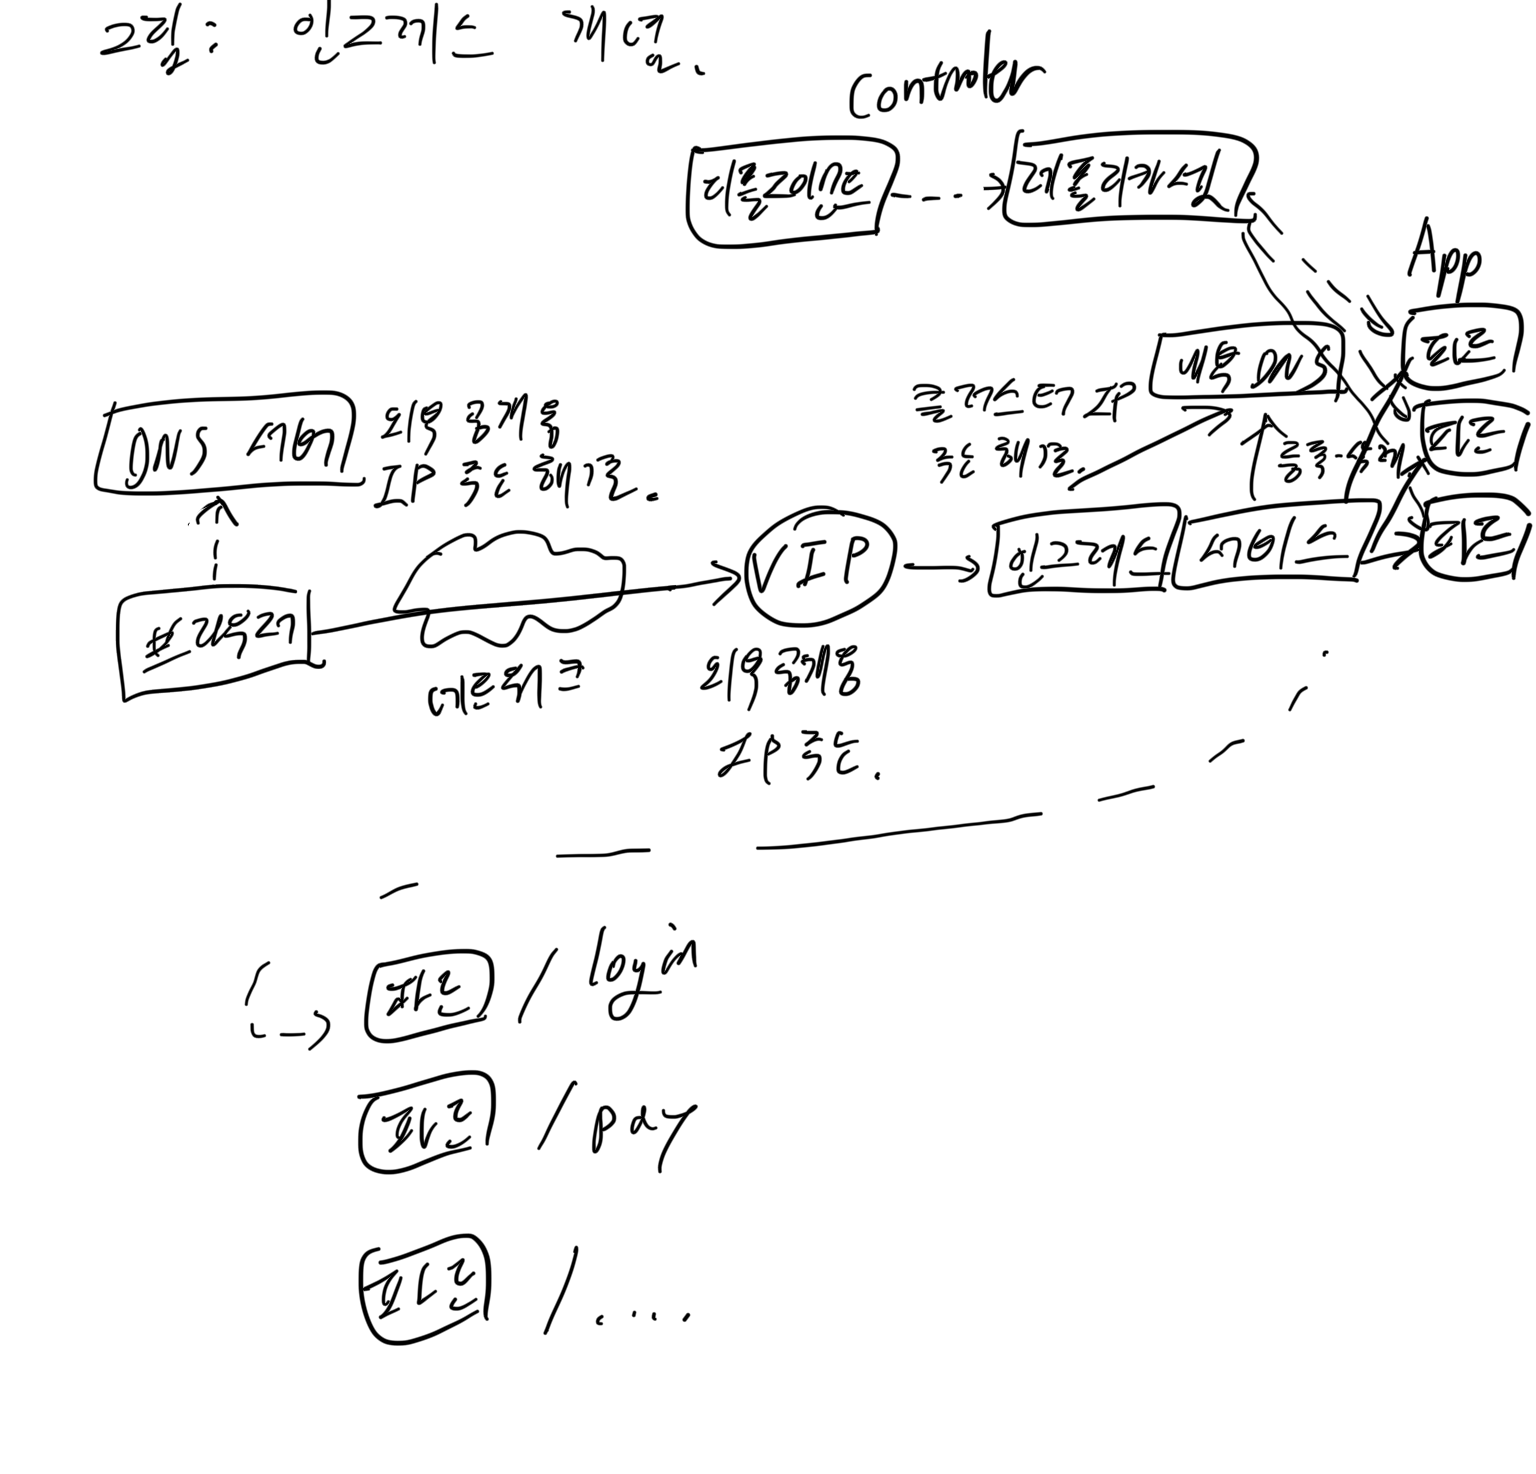 그림: 인그레스 개념.
Controler
디플로이먼트
레플리카셋
App
파드
내부 DNS
클러스터 IP
주소 해결.
등록·삭제
파드
파드
DNS 서버
외부 공개용
IP 주소 해결.
브라우저
네트워크
VIP
외부 공개용
IP 주소.
인그레스
서비스
파드 / login
파드 / pay
파드 / ....